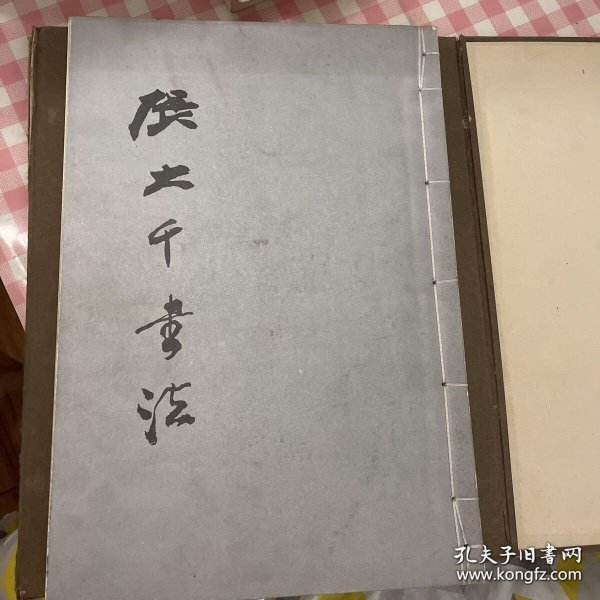 張大千書法
孔夫子旧書网
www.kongfz.com